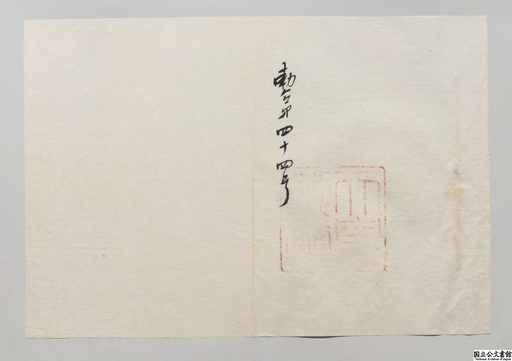 勅令第四十四号
国立公文書館
National Archives of Japan